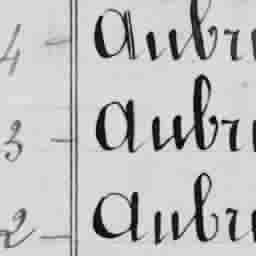 4 - Aubr
3 - Aubr
2 - Aubr